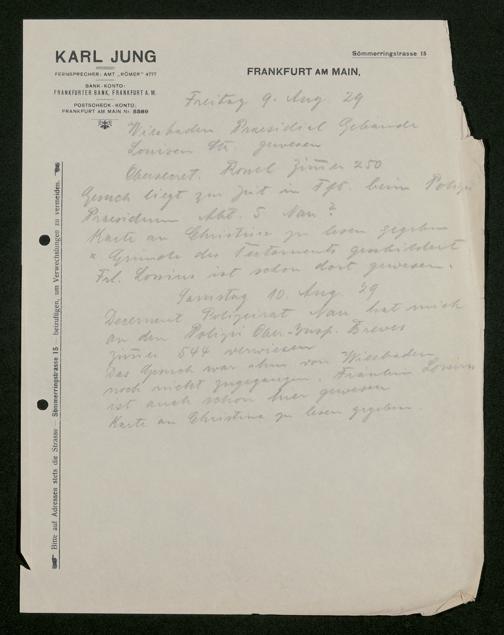 KARL JUNG
FERNSPRECHER: AMT „RÖMER" 4777
BANK-KONTO:
FRANKFURTER BANK, FRANKFURT A. M.
POSTSCHECK-KONTO:
FRANKFURT AM MAIN Nr. 5589
Sömmerringstrasse 15
FRANKFURT AM MAIN,
Bitte auf Adressen stets die Strasse — Sömmerringstrasse 15 — beizufügen, um Verwechslungen zu vermeiden.
Freitag 9. Aug. 29
Wiesbaden Praesidial Gebäude
Louisen Str. gewesen
Obersecret. Zimmer 250
Gesuch liegt zur Zeit in Fft. beim Polizei
Praesidium Abt. 5 Nau?
Karte an Christine zu lesen gegeben
Gründe des Testaments geschildert
Frl. Lossius ist schon dort gewesen.
Samstag 10. Aug. 29
Decernent Polizeirat Nau hat mich
an den Polizei Ober-Insp. Brewes
Zimmer 544 verwiesen
Das Gesuch war ihm von Wiesbaden
noch nicht zugegangen. Fräulein Lossius
ist auch schon hier gewesen
Karte an Christine zu lesen gegeben.